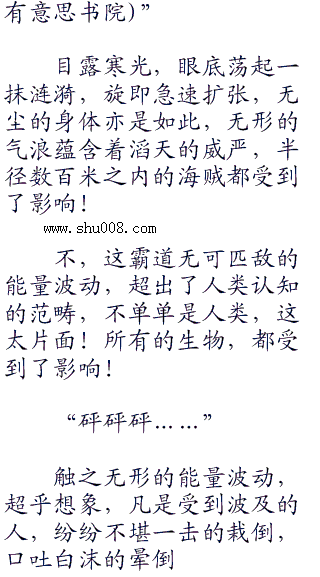 有意思书院)”
目露寒光，眼底荡起一
抹涟漪，旋即急速扩张，无
尘的身体亦是如此，无形的
气浪蕴含着滔天的威严，半
径数百米之内的海贼都受到
了影响！
www.shu008.com
不，这霸道无可匹敌的
能量波动，超出了人类认知
的范畴，不单单是人类，这
太片面！所有的生物，都受
到了影响！
“砰砰砰……”
触之无形的能量波动，
超乎想象，凡是受到波及的
人，纷纷不堪一击的栽倒，
口吐白沫的晕倒